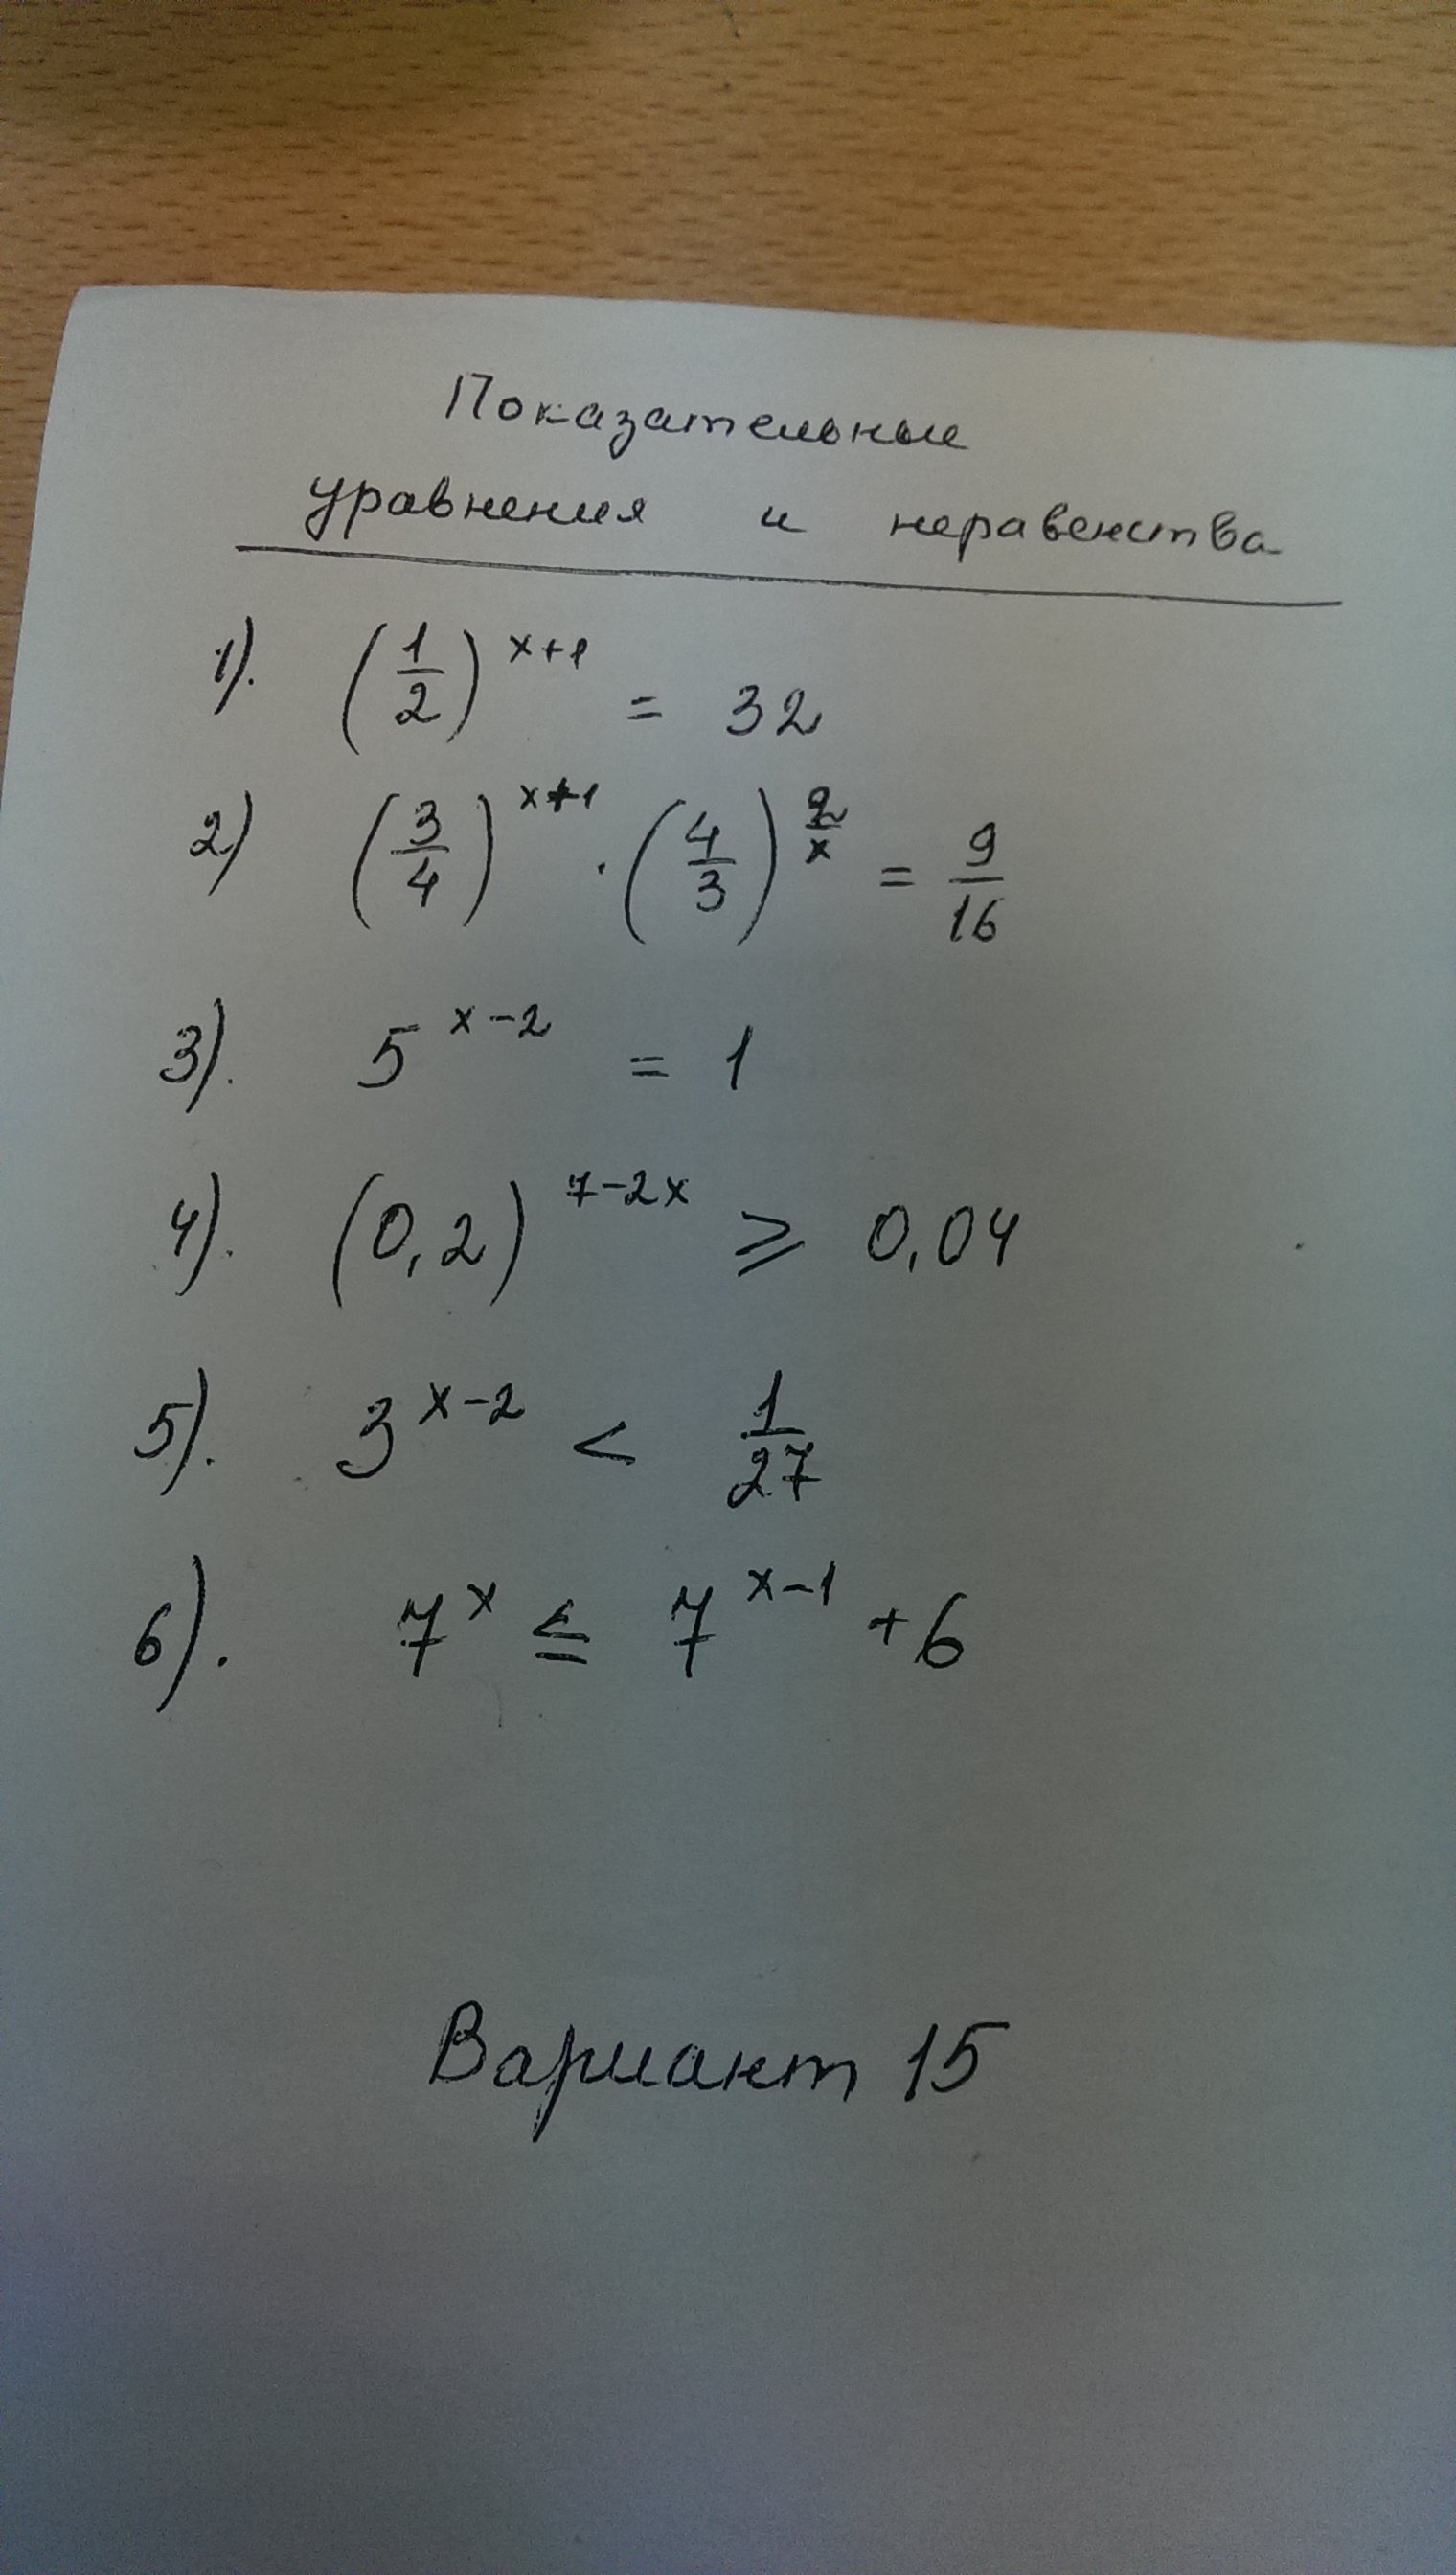 Показательные
уравнения и неравенства
1). (1/2)^(x+1) = 32
2) (3/4)^(x+1) · (4/3)^(2/x) = 9/16
3). 5^(x-2) = 1
4). (0,2)^(7-2x) ⩾ 0,04
5). 3^(x-2) < 1/27
6). 7^x ≤ 7^(x-1) + 6
Вариант 15